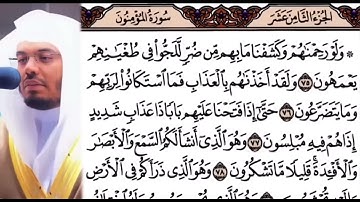 الجزء الثامن عشر
سورة المؤمنون
۞ وَلَوْ رَحِمْنَٰهُمْ وَكَشَفْنَا مَا بِهِم مِّن ضُرٍّ لَّلَجُّوا۟ فِى طُغْيَٰنِهِمْ
يَعْمَهُونَ ٧٥ وَلَقَدْ أَخَذْنَٰهُم بِٱلْعَذَابِ فَمَا ٱسْتَكَانُوا۟ لِرَبِّهِمْ
وَمَا يَتَضَرَّعُونَ ٧٦ حَتَّىٰٓ إِذَا فَتَحْنَا عَلَيْهِم بَابًا ذَا عَذَابٍ شَدِيدٍ
إِذَا هُمْ فِيهِ مُبْلِسُونَ ٧٧ وَهُوَ ٱلَّذِىٓ أَنشَأَ لَكُمُ ٱلسَّمْعَ وَٱلْأَبْصَٰرَ
وَٱلْأَفْـِٔدَةَ ۚ قَلِيلًا مَّا تَشْكُرُونَ ٧٨ وَهُوَ ٱلَّذِى ذَرَأَكُمْ فِى ٱلْأَرْضِ